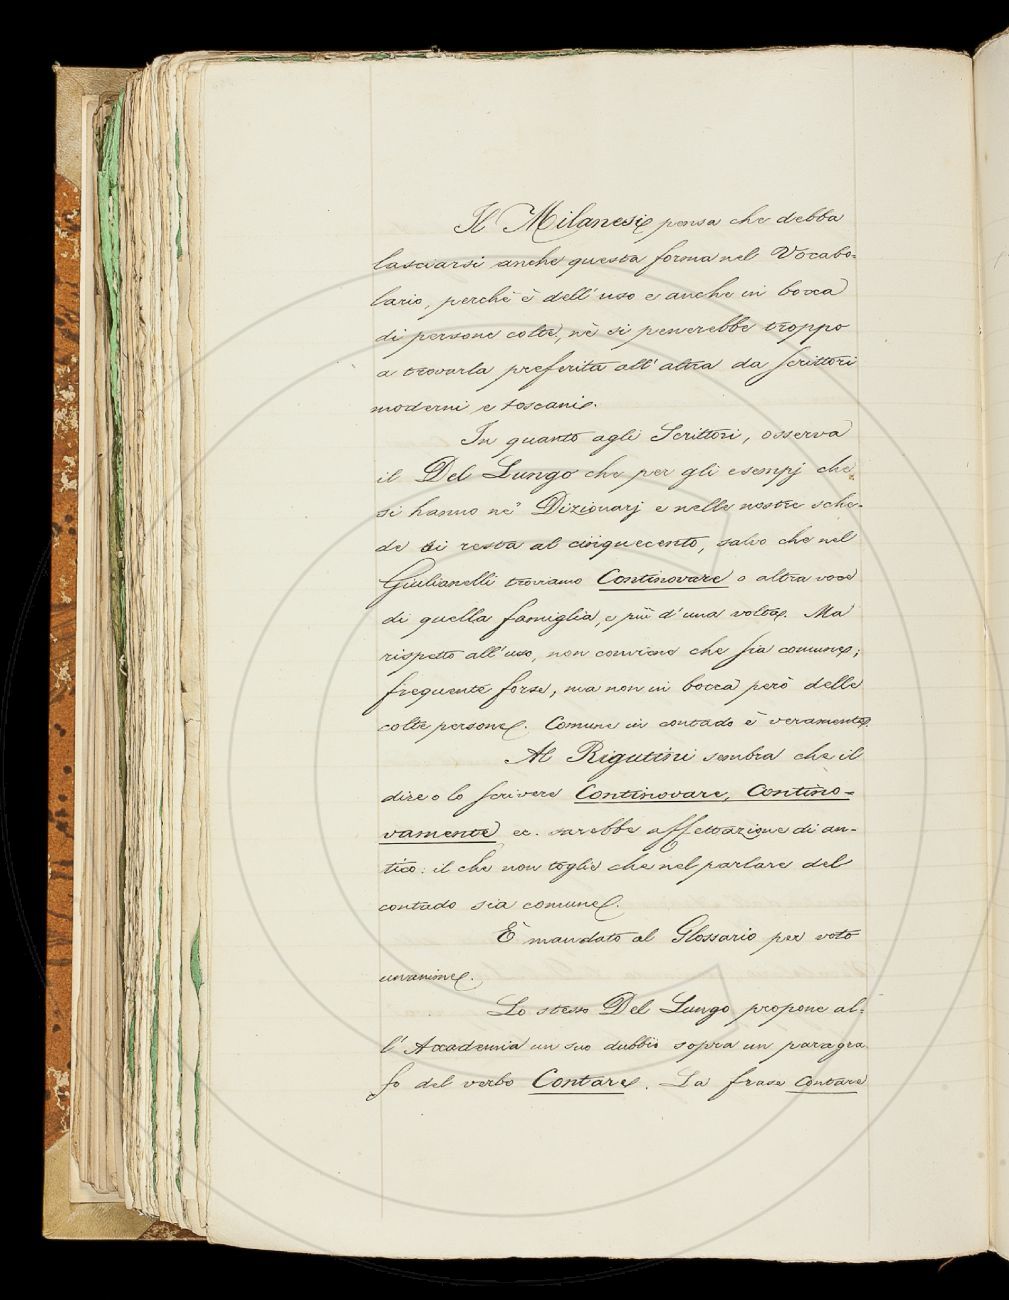 Il Milanesi pensa che debba
lasciarsi anche questa forma nel Vocabo-
lario, perchè è dell'uso e anche in bocca
di persone colte, nè si penerebbe troppo
a trovarla preferita all'altra da scrittori
moderni e toscani.
In quanto agli Scrittori, osserva
il Del Lungo che per gli esempj che
si hanno ne' Dizionarj e nelle nostre sche-
de si resta al cinquecento, salvo che nel
Giulianelli troviamo Continovare o altra voce
di quella famiglia, e più d'una volta. Ma
rispetto all'uso, non conviene che sia comune;
frequente forse, ma non in bocca però delle
colte persone. Comune in contado è veramente.
Al Rigutini sembra che il
dire o lo scrivere Continovare, Contino-
vamente ec. sarebbe affettazione di an-
tico: il che non toglie che nel parlare del
contado sia comune.
È mandato al Glossario per voto
unanime.
Lo stesso Del Lungo propone al-
l'Accademia un suo dubbio sopra un paragra
fo del verbo Contare. La frase Contare